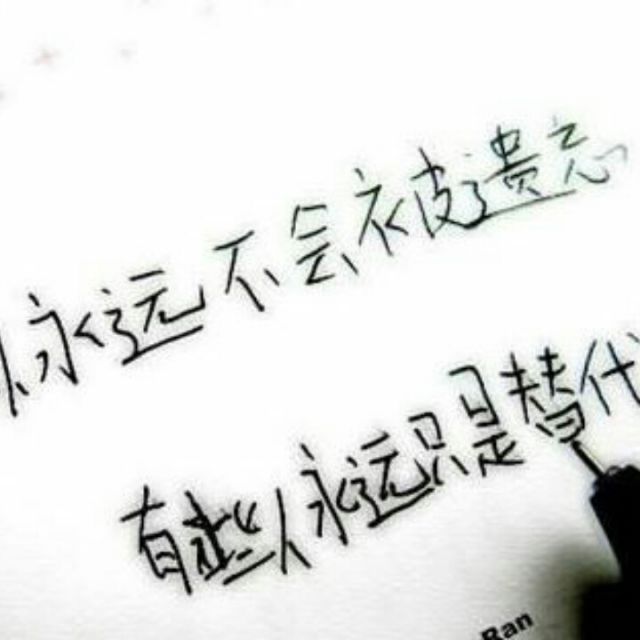 人永远不会被遗忘
有些人永远只是替代
Ran